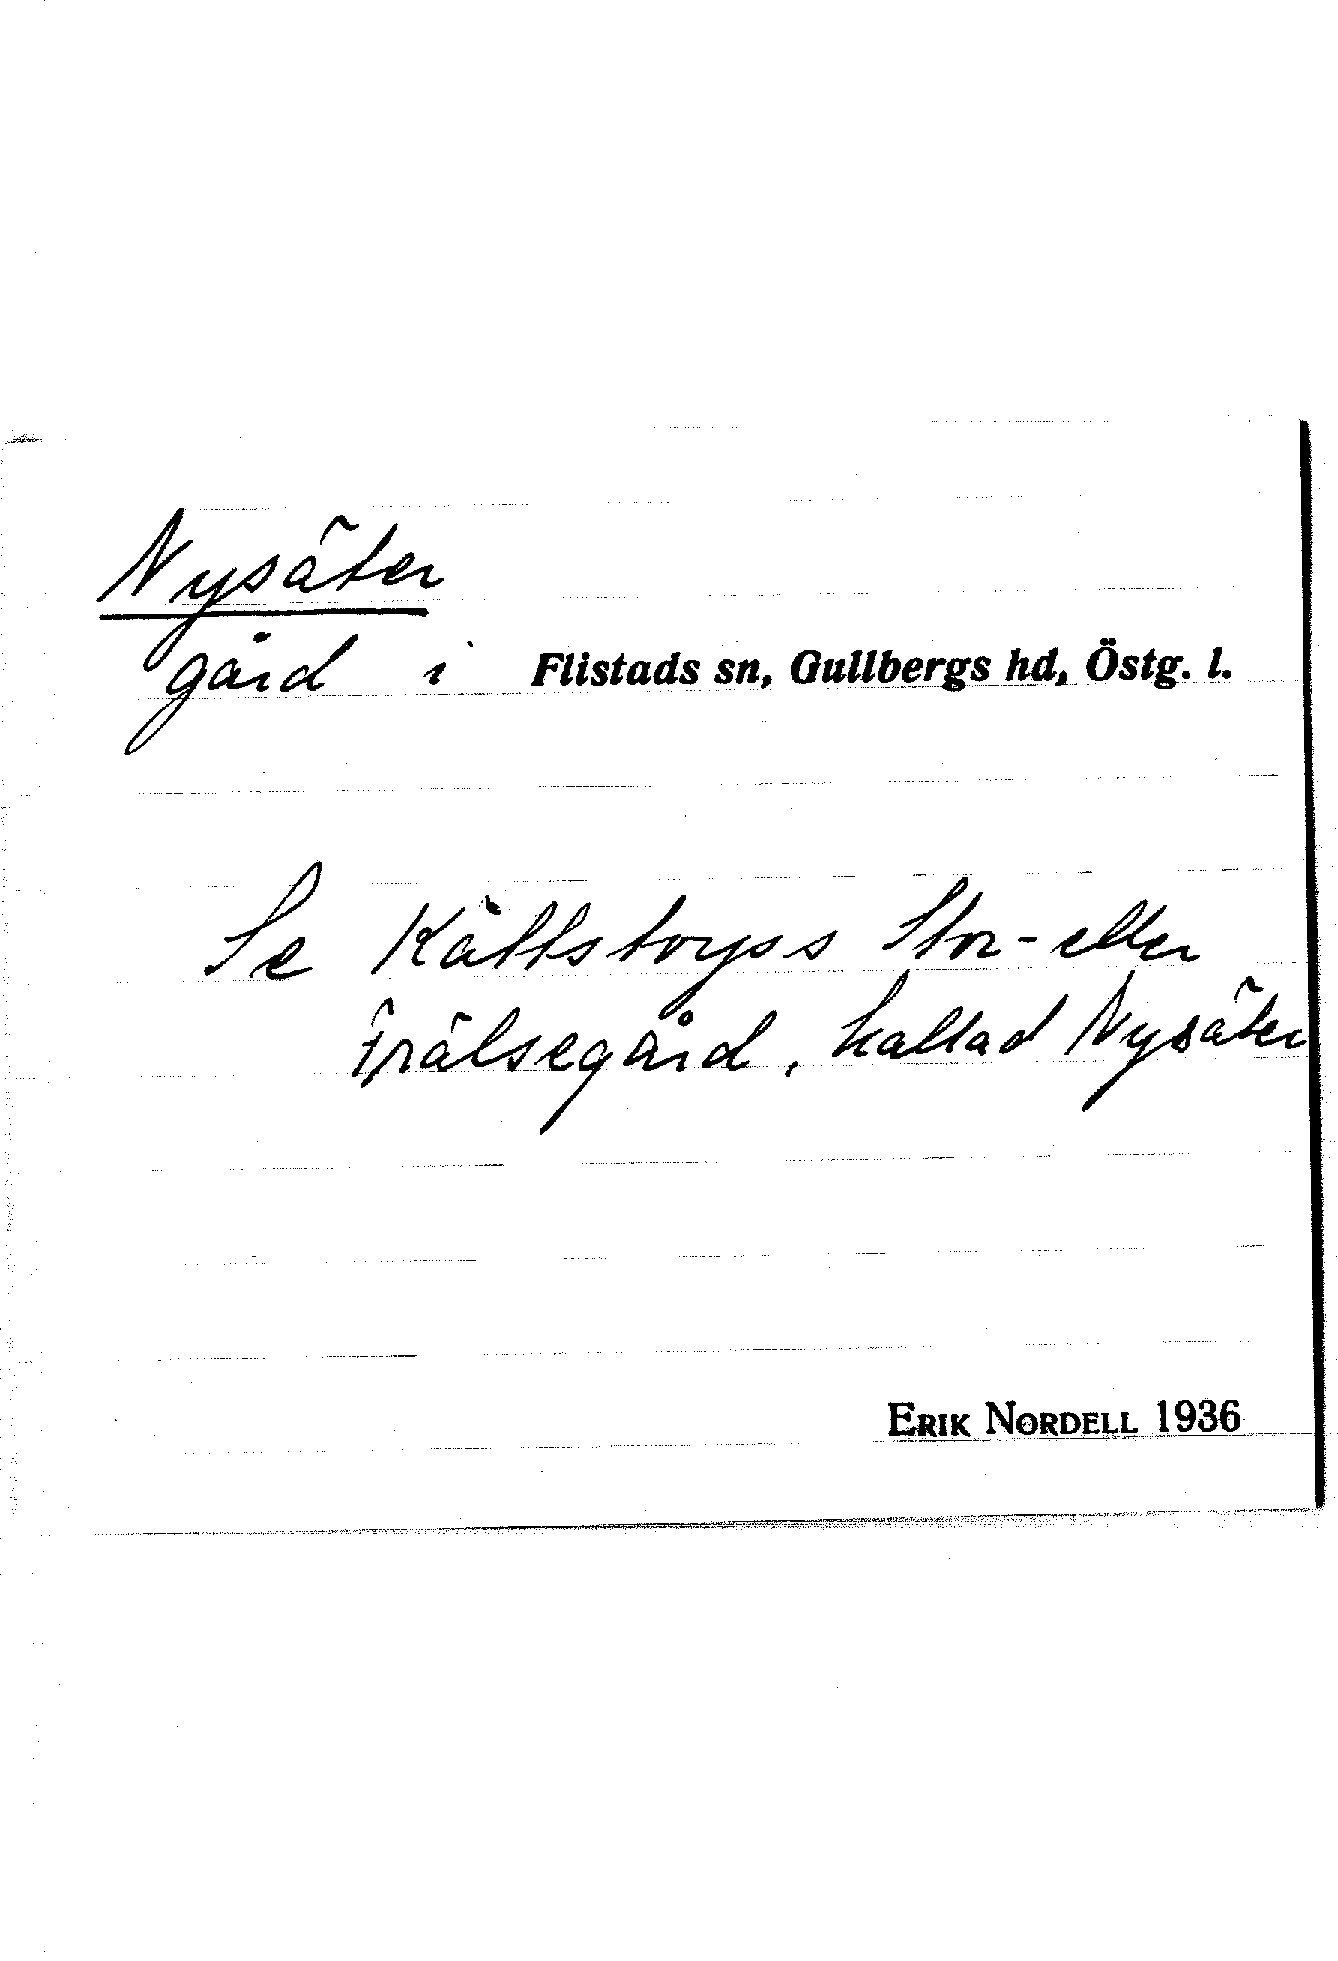 Nysäter
gård i Flistads sn, Gullbergs hd, Östg. l.
Se Källstorps Stor- eller
Frälsegård, kallad Nysäter
ERIK NORDELL 1936